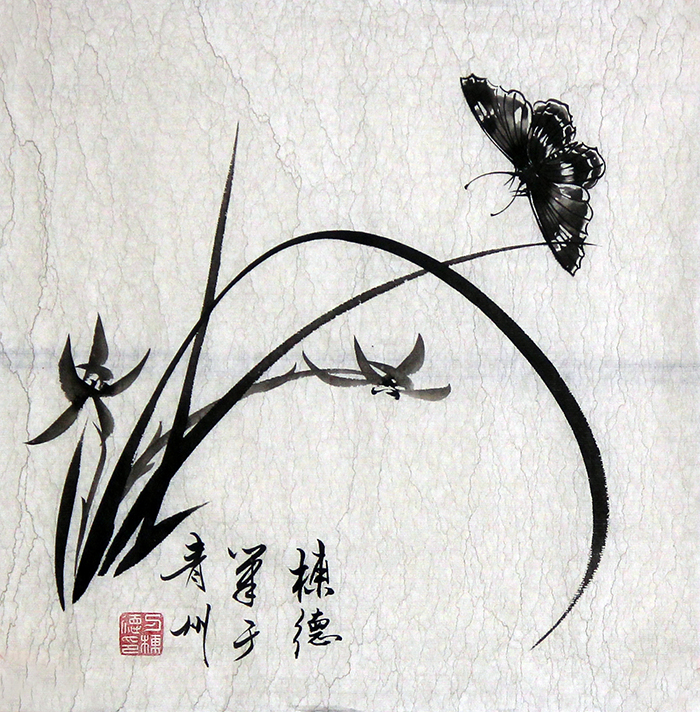 棟德
筆于
青州
棟
德印